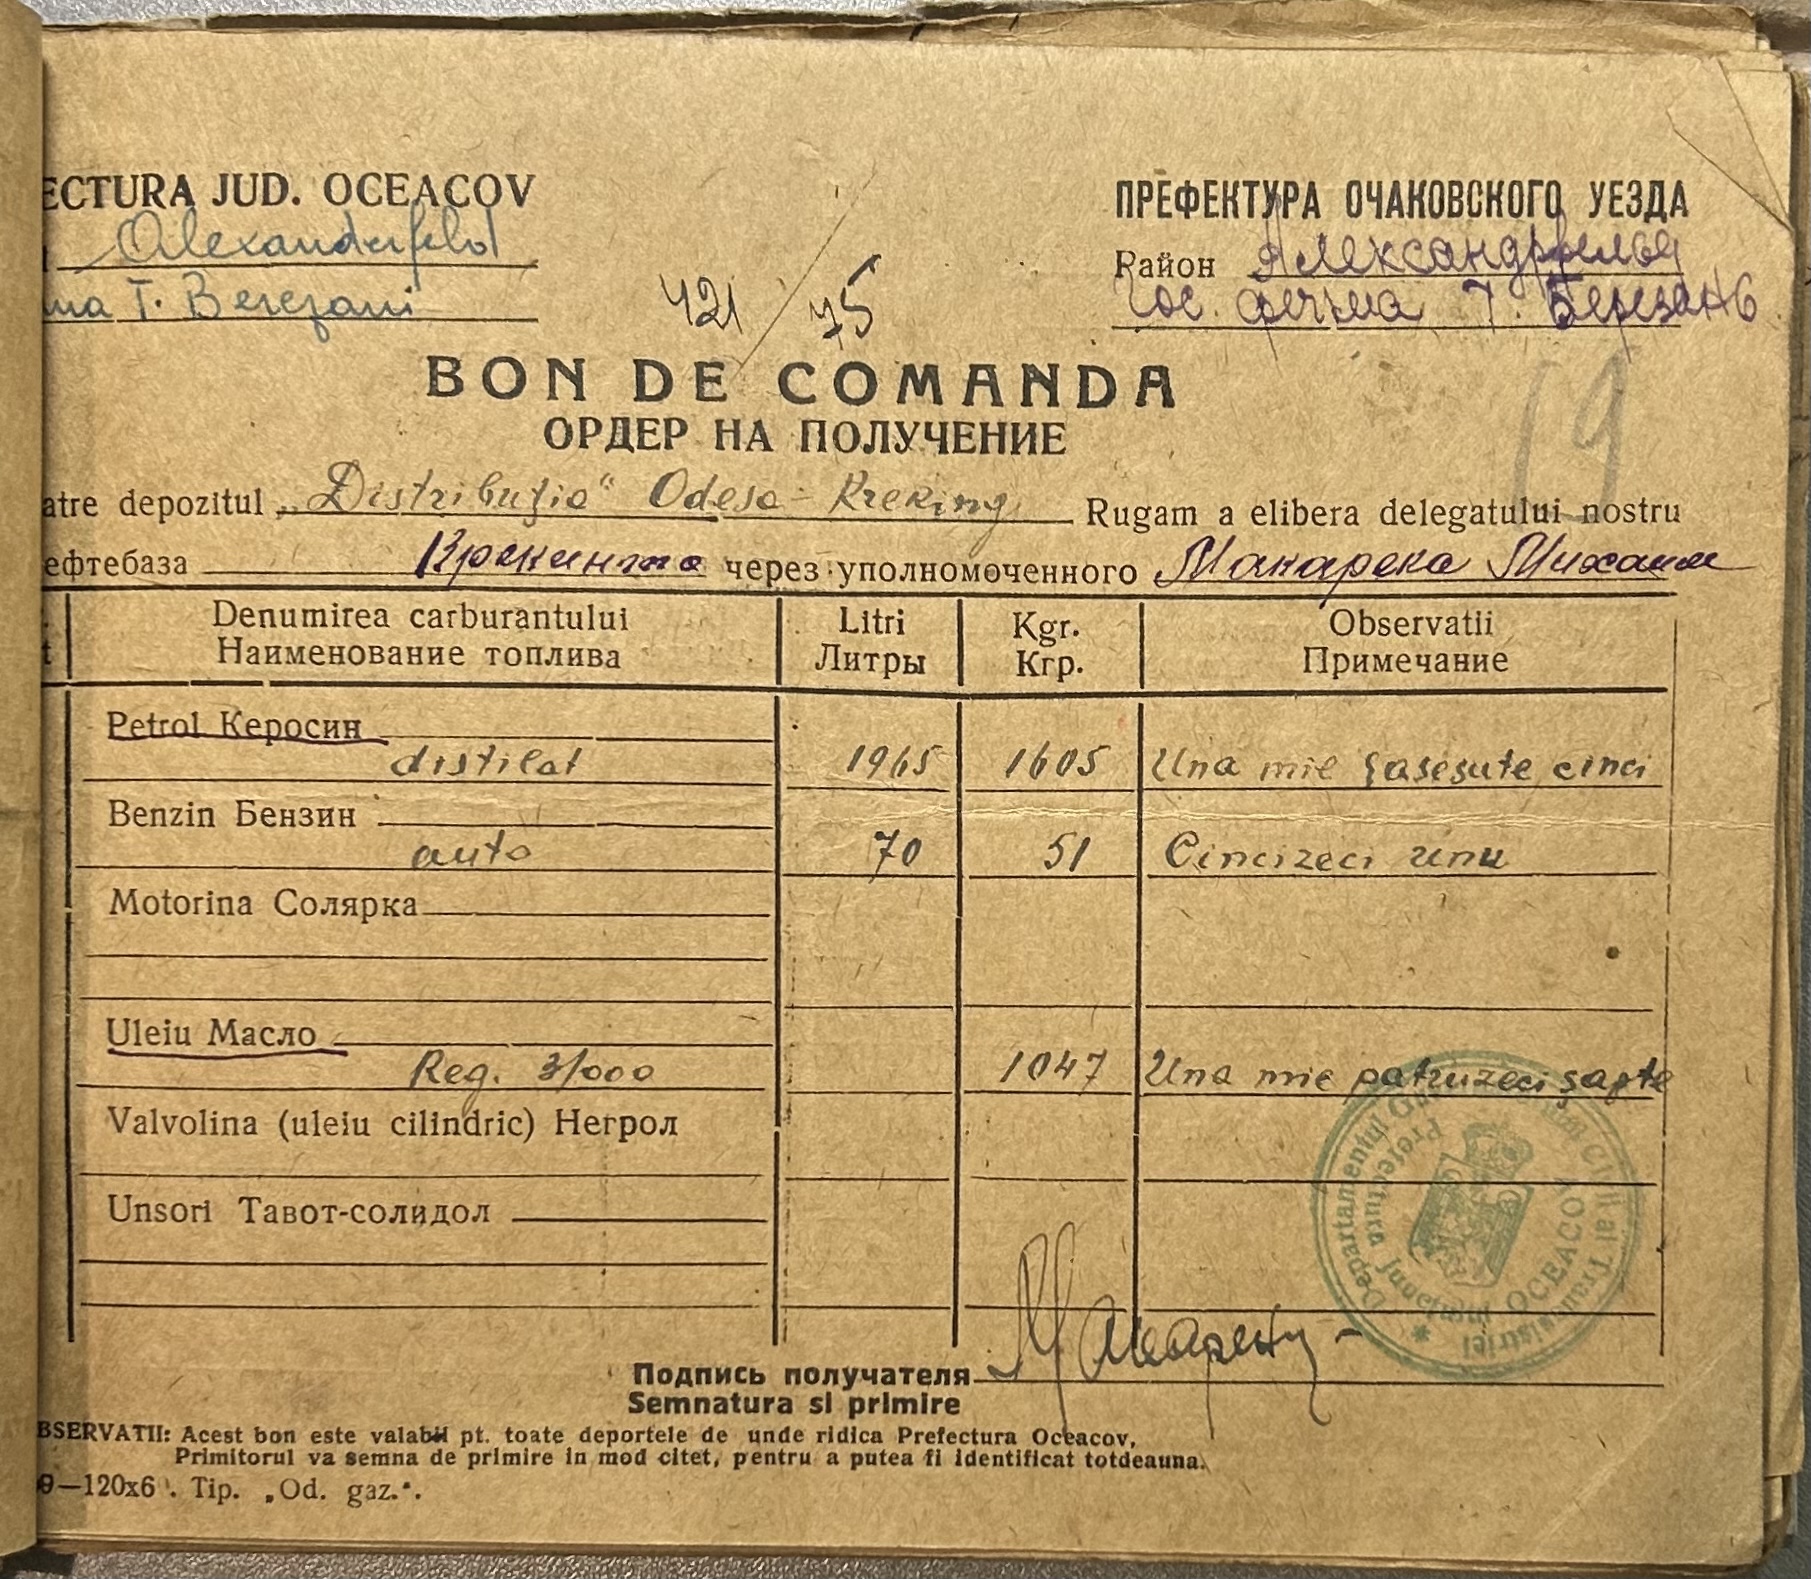 ECTURA JUD. OCEACOV
Alexanderfeld
T. Berezani
ПРЕФЕКТУРА ОЧАКОВСКОГО УЕЗДА
Район Александрфельд
Гос. ферма Т. Березань
421/75
19
BON DE COMANDA
ОРДЕР НА ПОЛУЧЕНИЕ
atre depozitul „Distribuția“ Odesa - Kreking Rugam a elibera delegatului nostru
ефтебаза Крекинга через уполномоченного Макарека Михаил
Denumirea carburantului Litri Kgr. Observatii
Наименование топлива Литры Кгр. Примечание
Petrol Керосин
distilat 1965 1605 Una mie șasesute cinci
Benzin Бензин
auto 70 51 Cincizeci unu
Motorina Солярка
Uleiu Масло
Reg. 3/000 1047 Una mie patruzeci șapte
Valvolina (uleiu cilindric) Негрол
Unsori Тавот-солидол
Prefectura Județului OCEACOV
Подпись получателя
Semnatura si primire
BSERVATII: Acest bon este valabil pt. toate deportele de unde ridica Prefectura Oceacov,
Primitorul va semna de primire in mod citet, pentru a putea fi identificat totdeauna.
9—120x6 . Tip. „Od. gaz.“.